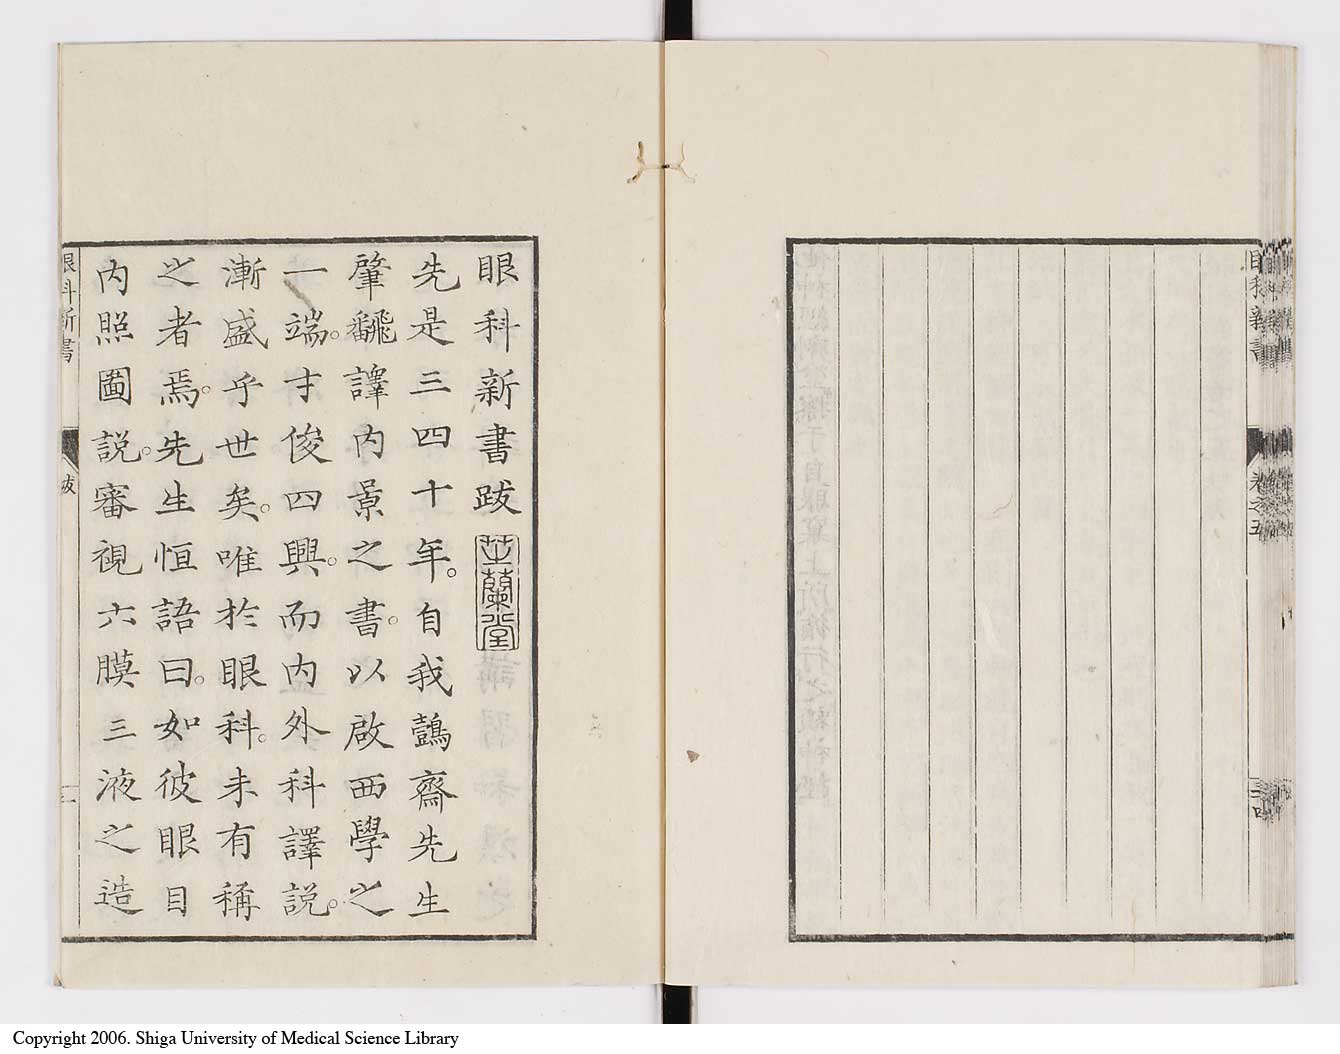 眼科新書
卷之五
二十四
眼科新書跋
芝蘭堂
先是三四十年。自我鷧齋先生
肇飜譯内景之書。以啟西學之
一端。才俊四興。而内外科譯説。
漸盛乎世矣。唯於眼科。未有稱
之者焉。先生恒語曰。如彼眼目
内照圖説。審視六膜三液之造
眼科新書
跋
一
Copyright 2006. Shiga University of Medical Science Library